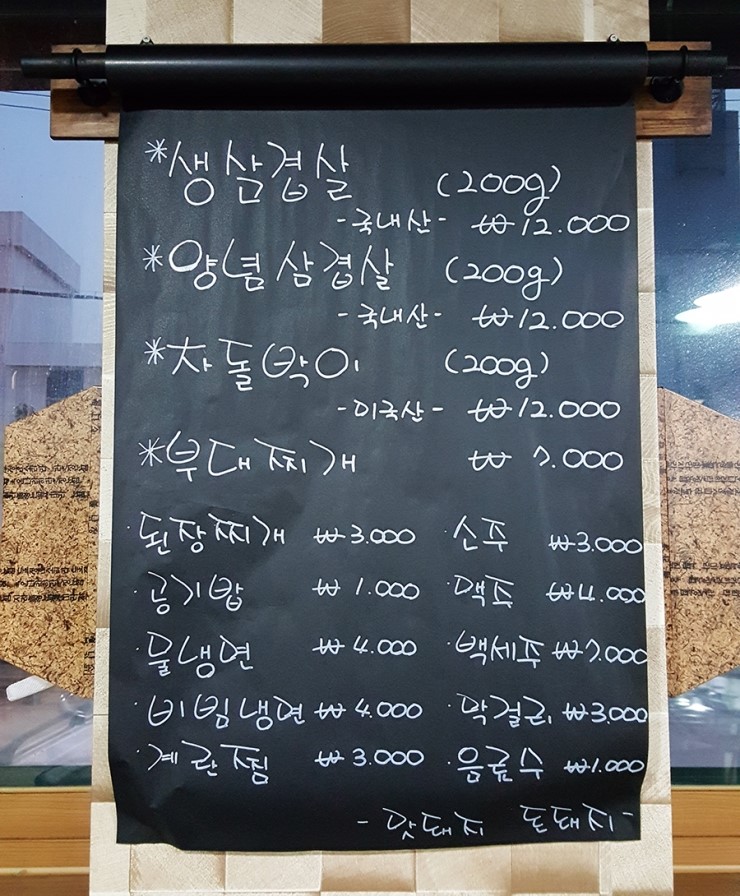 *생삼겹살 (200g)
-국내산- ₩12.000
*양념삼겹살 (200g)
-국내산- ₩12.000
*차돌박이 (200g)
-미국산- ₩12.000
*부대찌개 ₩7.000
·된장찌개 ₩3.000 ·소주 ₩3.000
·공기밥 ₩1.000 ·맥주 ₩4.000
·물냉면 ₩4.000 ·백세주 ₩7.000
·비빔냉면 ₩4.000 ·막걸리 ₩3.000
·계란찜 ₩3.000 ·음료수 ₩1.000
-맛돼지 돈돼지-